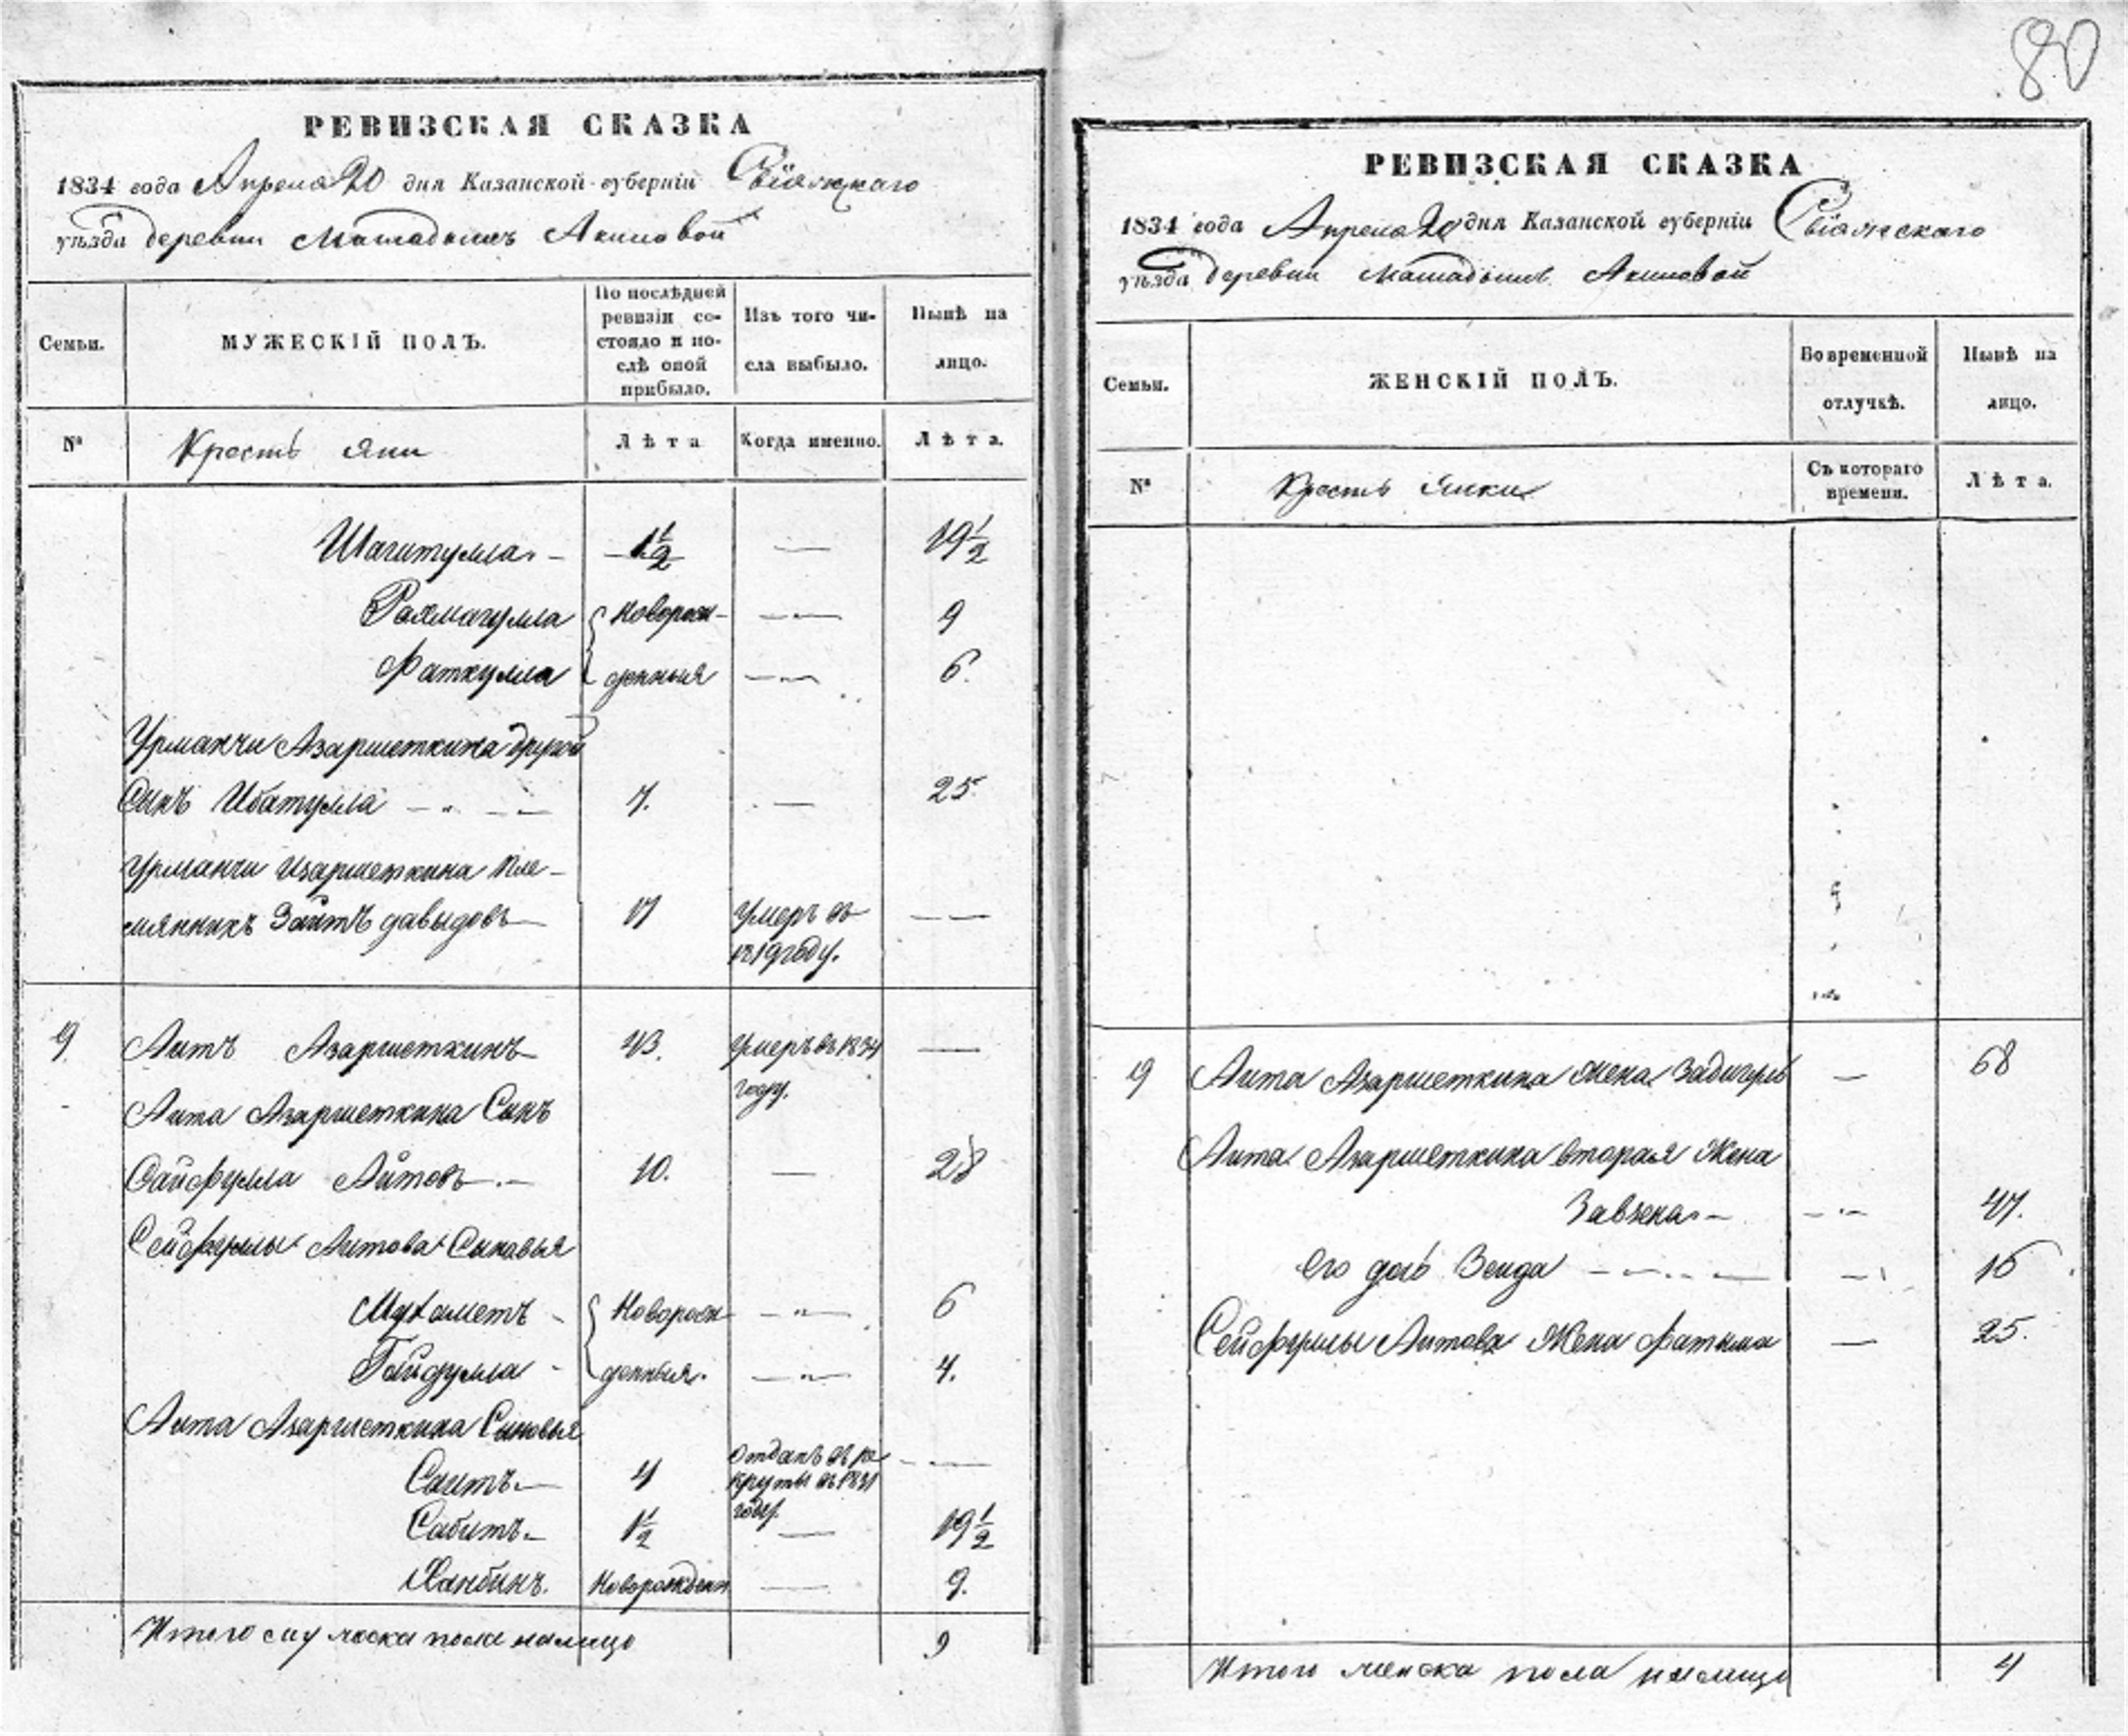 80
РЕВИЗСКАЯ СКАЗКА
1834 года Апреля 20 дня Казанской губерніи Свіяжскаго
уѣзда деревни Акиловой
Семьи.
МУЖЕСКІЙ ПОЛЪ.
По послѣдней ревизіи состояло и послѣ оной прибыло.
Изъ того числа выбыло.
Нынѣ на лицо.
№
Крестьяни
Лѣта
Когда именно.
Лѣта.
Шагитулла 1½ — 19½
Рахматулла Новорож- — 9
Фаткулла денныя — 6.
Урманчи Азаршеткина другой
Сынъ Ибатулла 7. — 25
Урманчи Изаршеткина пле-
мянникъ Заитъ давыдовъ 17 умеръ въ —
1819 году.
9 Аитъ Азаршеткинъ 43. умеръ въ 1834 —
году.
Аита Азаршеткина Сынъ
Сайфулла Аитовъ 10. — 28
Сейфуллы Аитова Сыновья
Мухаметъ Новорож — 6
Гайдулла денныя. — 4.
Аита Азаршеткина Сыновья
Саитъ 4 Отданъ въ ре —
круты въ 1831
году.
Сабитъ 1½ — 19½
Ханбинъ. Новорожден — 9.
Итого мужеска пола налицо 9
РЕВИЗСКАЯ СКАЗКА
1834 года Апреля 20 дня Казанской губерніи Свіяжскаго
уѣзда деревни Акиловой
Семьи.
ЖЕНСКІЙ ПОЛЪ.
Во временной отлучкѣ.
Нынѣ на лицо.
№
Крестьянки
Съ котораго времени.
Лѣта.
9 Аита Азаршеткина жена — 68
Аита Азаршеткина вторая Жена
— 47.
его дочь Зеида — 16
Сейфуллы Аитова Жена Фатыма — 25.
Итого женска пола налицо 4